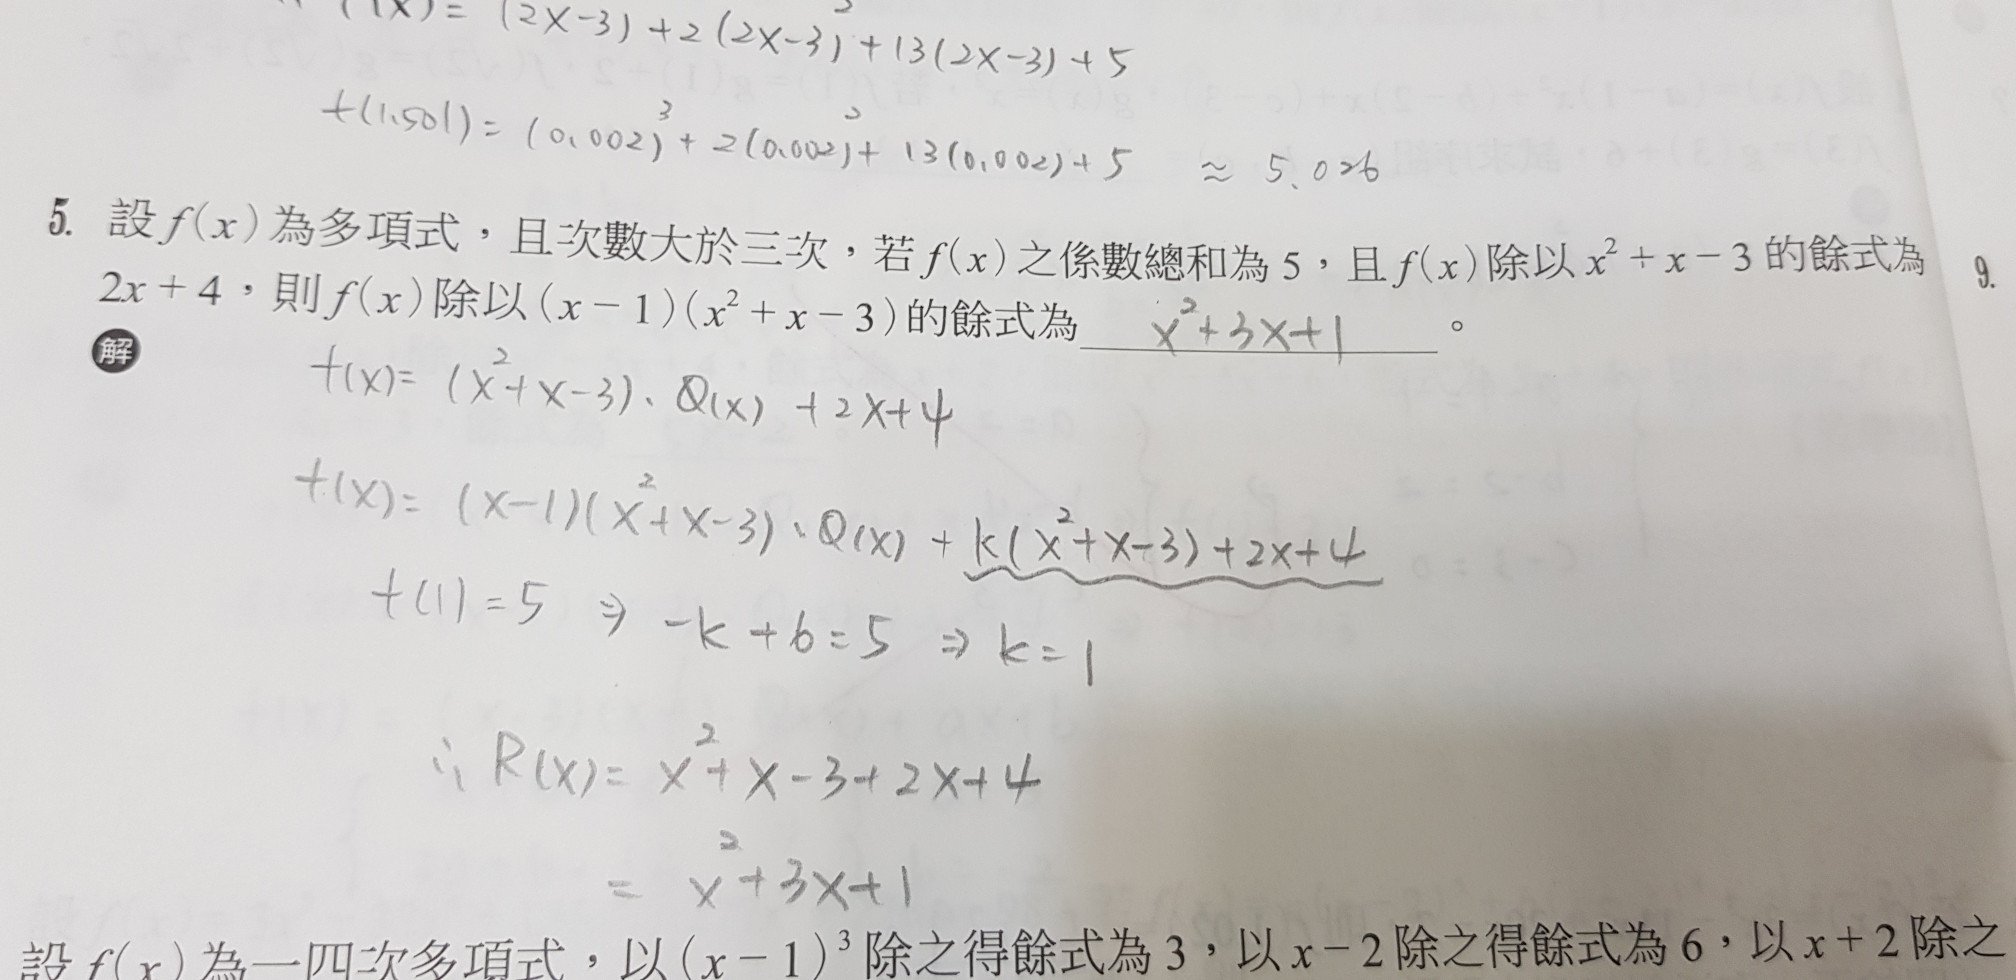 (x) = (2x-3) + 2(2x-3)² + 13(2x-3) + 5
f(1.501) = (0.002)³ + 2(0.002)² + 13(0.002) + 5 ≈ 5.026
5. 設 f(x) 為多項式，且次數大於三次，若 f(x) 之係數總和為 5，且 f(x) 除以 x² + x − 3 的餘式為
2x + 4，則 f(x) 除以 (x − 1)(x² + x − 3) 的餘式為 x²+3x+1 。
9.
解
f(x) = (x²+x-3)、Q(x) + 2x+4
f(x) = (x-1)(x²+x-3)、Q(x) + k(x²+x-3)+2x+4
f(1) = 5 ⇒ -k+6=5 ⇒ k=1
∴ R(x) = x²+x-3+2x+4
= x²+3x+1
設 f(x) 為一四次多項式，以 (x − 1)³ 除之得餘式為 3，以 x − 2 除之得餘式為 6，以 x + 2 除之